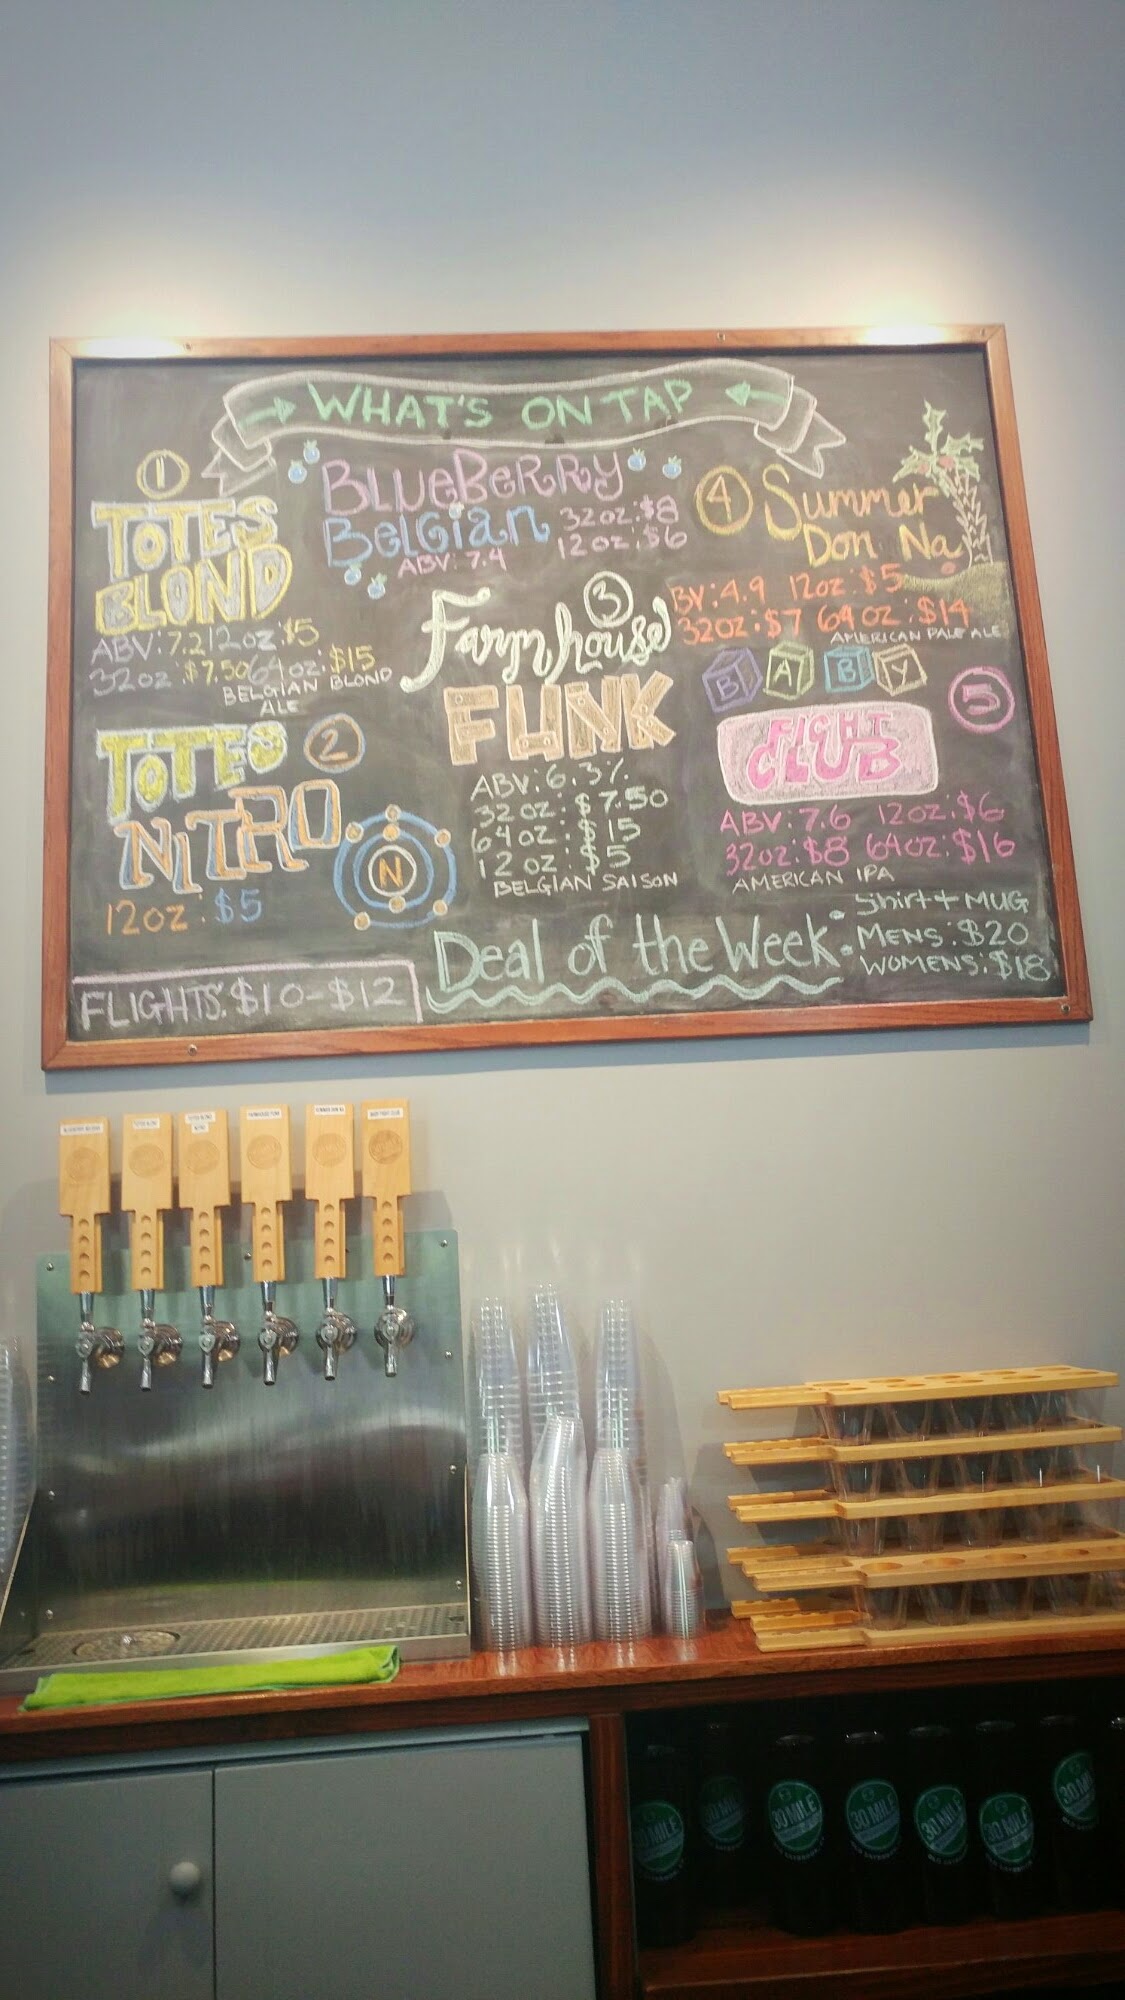 WHAT'S ON TAP
1
TOTES
BLOND
ABV: 7.2 12oz: $5
32oz: $7.50 64oz: $15
BELGIAN BLOND
ALE
BLUEBERRY
BELGIAN
32oz: $8
12oz: $6
ABV: 7.4
4
Summer
Don Na
BV: 4.9 12oz: $5
32oz: $7 64oz: $14
AMERICAN PALE ALE
3
Farmhouse
FUNK
ABV: 6.3%
32 oz: $7.50
64 oz: $15
12 oz: $5
BELGIAN SAISON
BABY
5
FIGHT
CLUB
ABV: 7.6 12oz: $6
32oz: $8 64oz: $16
AMERICAN IPA
TOTES
2
NITRO
N
12oz: $5
FLIGHTS: $10-$12
Deal of the Week:
Shirt + MUG
MENS: $20
WOMENS: $18
30 MILE
30 MILE
30 MILE
30 MILE